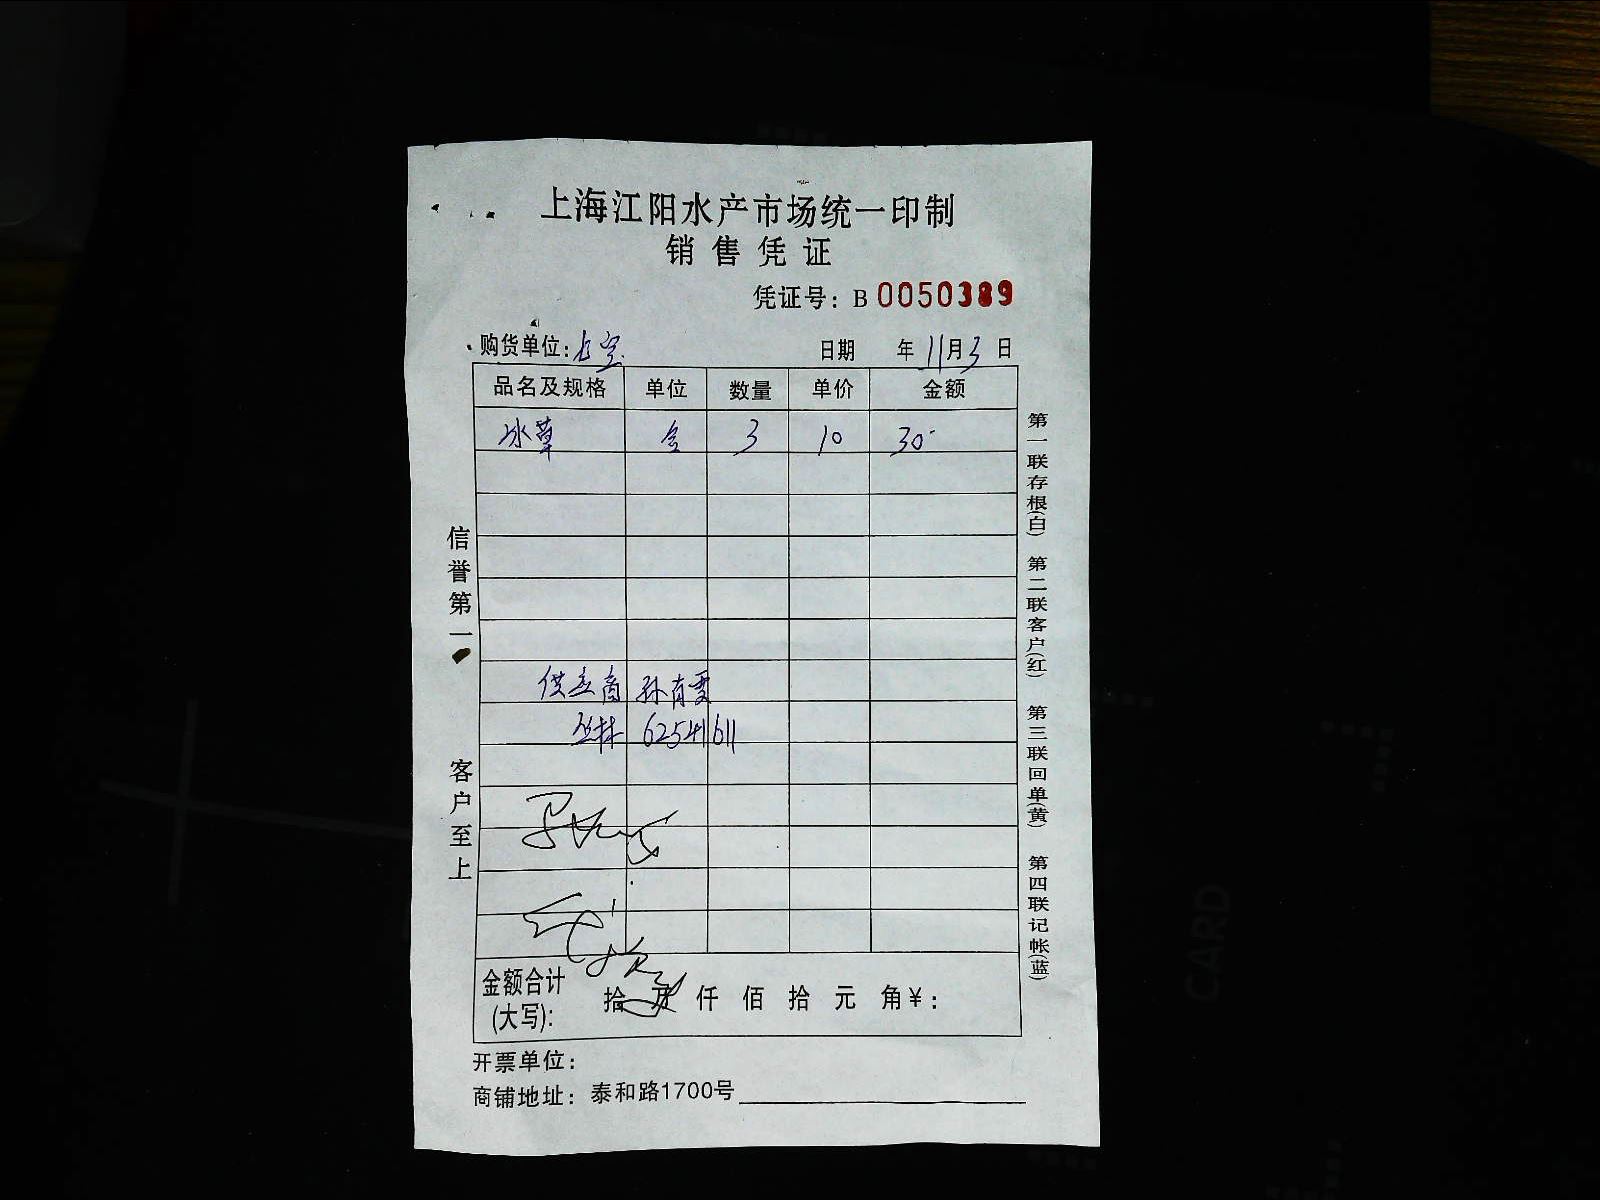 上海江阳水产市场统一印制
销售凭证
凭证号：B 0050389
购货单位： 日期 年 11月3日
品名及规格 单位 数量 单价 金额
冰草 3 10 30
供应商 孙有雯
丛林 62541611
金额合计 拾万仟佰拾元角¥：
(大写)：
开票单位：
商铺地址：泰和路1700号
信誉第一 客户至上
第一联存根(白) 第二联客户(红) 第三联回单(黄) 第四联记帐(蓝)
CARD